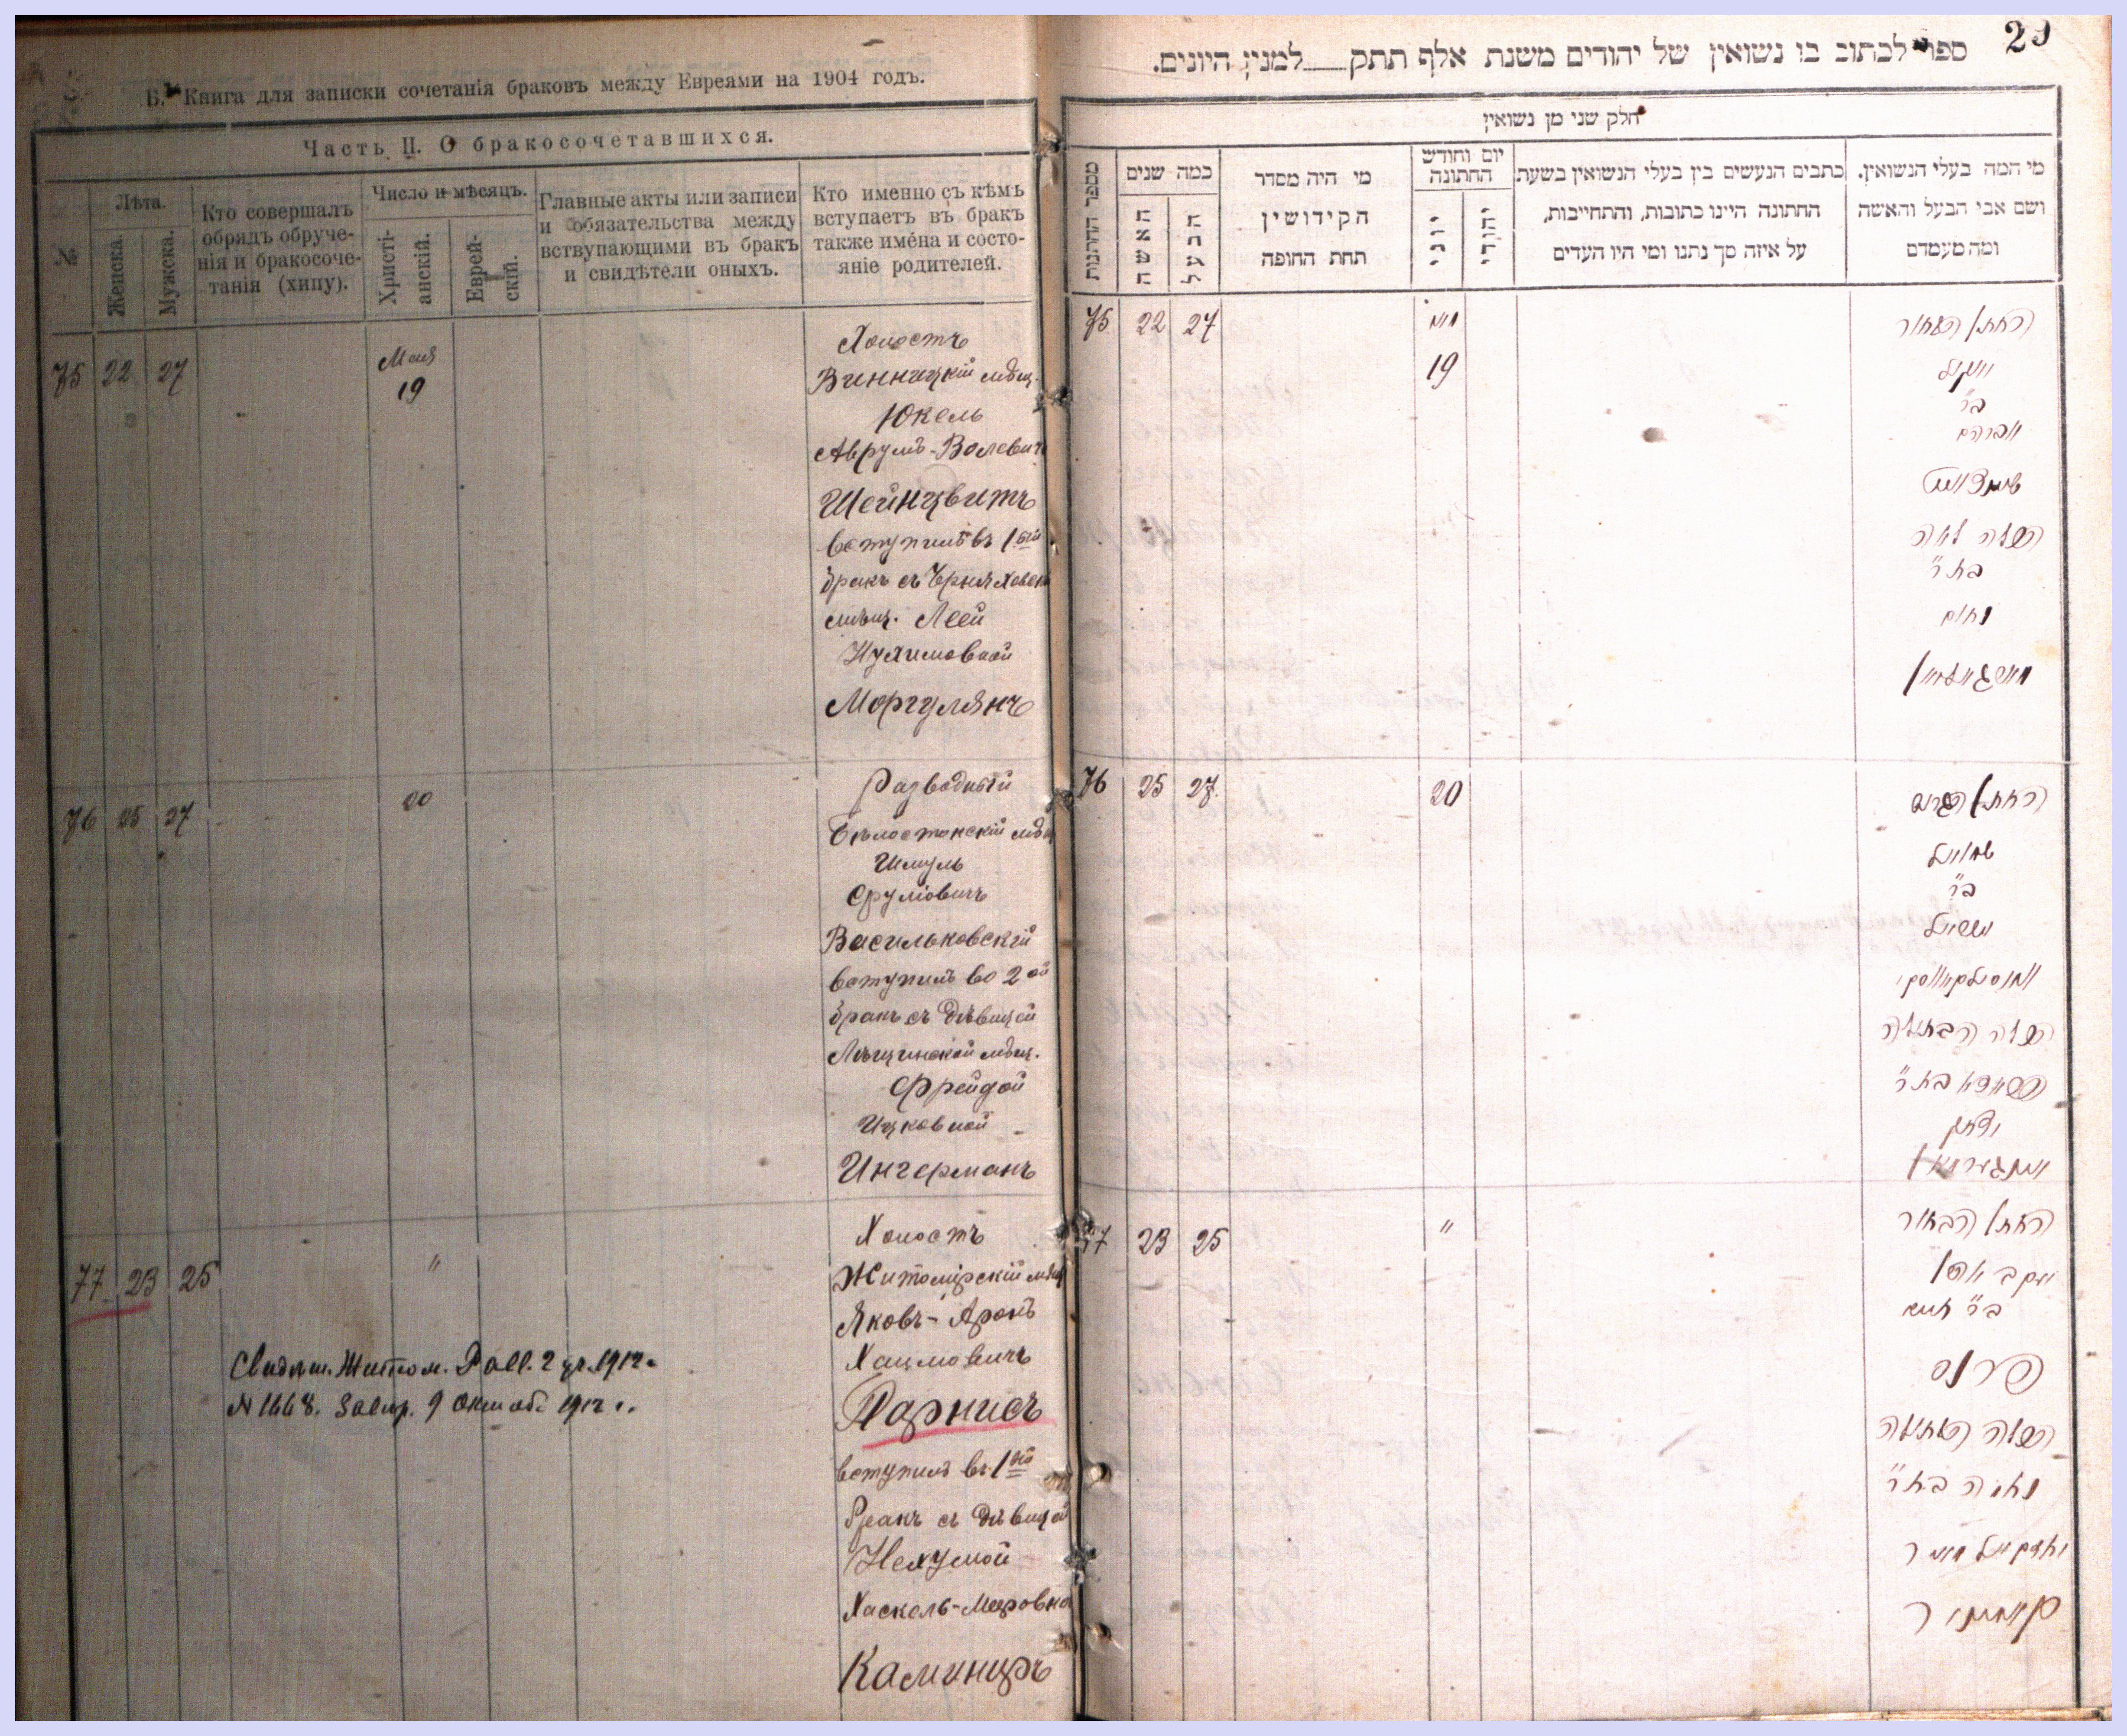 Б. Книга для записки сочетанія браковъ между Евреями на 1904 годъ.
Часть II. О бракосочетавшихся.
№
Лѣта.
Женска.
Мужска.
Кто совершалъ
обрядъ обруче-
нія и бракосоче-
танія (хипу).
Число и мѣсяцъ.
Христі-
анскій.
Еврей-
скій.
Главные акты или записи
и обязательства между
вствупающими въ бракъ
и свидѣтели оныхъ.
Кто именно съ кѣмъ
вступаетъ въ бракъ
также имена и состо-
яніе родителей.
75 22 27
Мая
19
Холостъ
Винницкій мѣщ.
Юкель
Аврумъ-Волевичъ
Шейнцвитъ
вступилъ въ 1ый
бракъ съ Черняховск
мѣщ. Леей
Нухимовной
Моргулянъ
76 25 27
20
Разводный
Бѣлостокскій мѣщ
Шмуль
Срулiовичъ
Васильковскій
вступилъ во 2ой
бракъ съ дѣвицей
Лѣщинской мѣщ.
Фрейдой
Ицковной
Ингерманъ
77 23 25
"
Холостъ
Житомірскій мѣщ
Яковъ-Аронъ
Хаимовичъ
Парнисъ
вступилъ въ 1ый
бракъ съ дѣвицей
Нехумой
Хаскель-Меровно
Каминиръ
Свидѣт. Житом. Равв. 2 уч. 1912 г.
N 1668. Завѣр. 9 Октяб. 1912 г.
29
ספר לכתוב בו נשואין של יהודים משנת אלף תתק___למנין היונים.
חלק שני מן נשואין
מספר החתונות
כמה שנים
האשה
הבעל
מי היה מסדר
הקידושין
תחת החופה
יום וחודש
החתונה
יוני
יהודי
כתבים הנעשים בין בעלי הנשואין בשעת
החתונה היינו כתובות, והתחייבות,
על איזה סך נתנו ומי היו העדים
מי המה בעלי הנשואין.
ושם אבי הבעל והאשה
ומה מעמדם
75 22 27
מאי
19
החתן הבחור
יוקיל
ב"ר
אברהם
שיינצוויט
הכלה לאה
בת ר'
נחום
מארגוליאן
76 25 27
20
החתן הגרוש
שמואל
ב"ר
ישראל
וואסילקאווסקי
הכלה הבתולה
פריידא בת ר'
יצחק
אינגערמאן
77 23 25
"
החתן הבחור
יעקב אהרן
ב"ר חיים
פרנס
הכלה הבתולה
נחומה בת ר'
יחזקיאל מאיר
קאמיניר